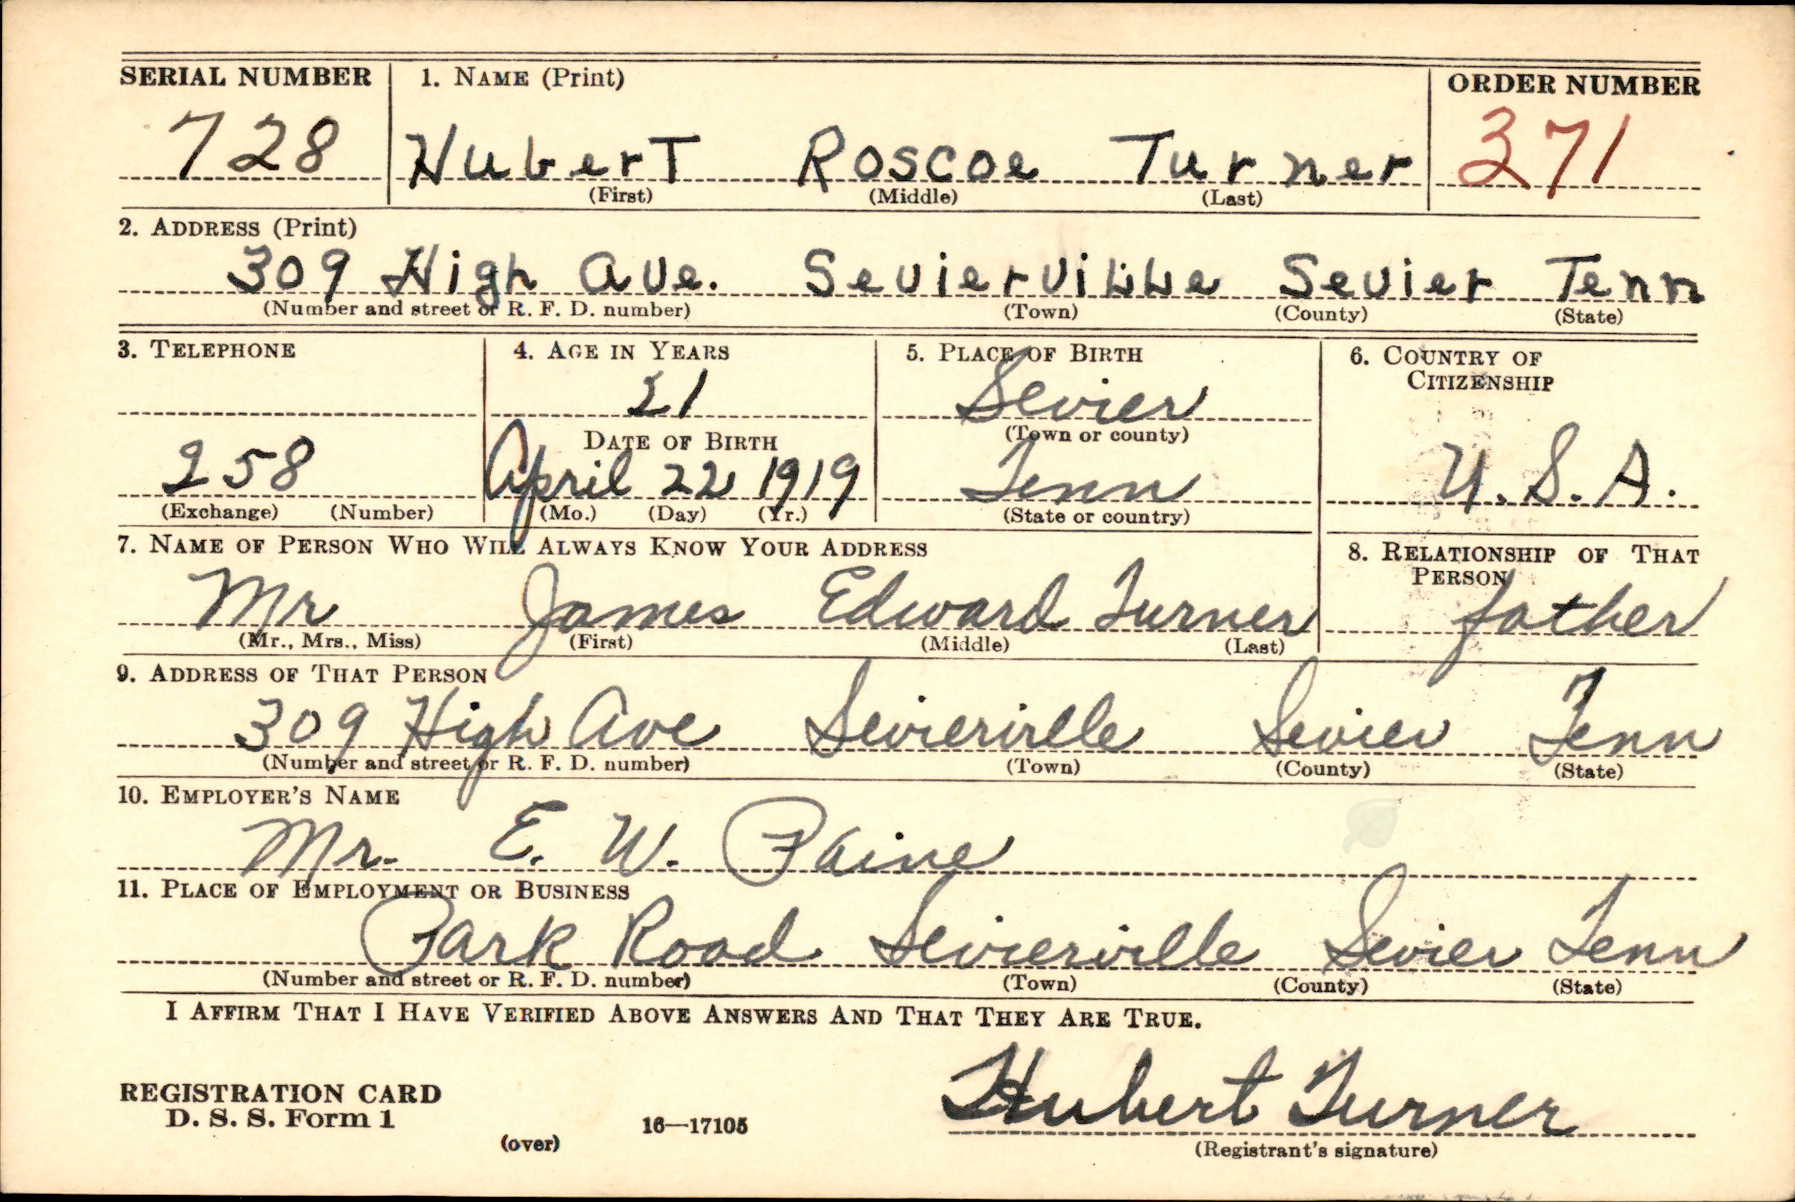 SERIAL NUMBER 1. NAME (Print) ORDER NUMBER
728 Hubert Roscoe Turner 371
(First) (Middle) (Last)
2. ADDRESS (Print)
309 High Ave. Sevierville Sevier Tenn
(Number and street or R. F. D. number) (Town) (County) (State)
3. TELEPHONE 4. AGE IN YEARS 5. PLACE OF BIRTH 6. COUNTRY OF
CITIZENSHIP
21 Sevier
DATE OF BIRTH (Town or county)
258 April 22 1919 Tenn U.S.A.
(Exchange) (Number) (Mo.) (Day) (Yr.) (State or country)
7. NAME OF PERSON WHO WILL ALWAYS KNOW YOUR ADDRESS 8. RELATIONSHIP OF THAT
PERSON
Mr James Edward Turner father
(Mr., Mrs., Miss) (First) (Middle) (Last)
9. ADDRESS OF THAT PERSON
309 High Ave Sevierville Sevier Tenn
(Number and street or R. F. D. number) (Town) (County) (State)
10. EMPLOYER'S NAME
Mr. E. W. Paine
11. PLACE OF EMPLOYMENT OR BUSINESS
Park Road Sevierville Sevier Tenn
(Number and street or R. F. D. number) (Town) (County) (State)
I AFFIRM THAT I HAVE VERIFIED ABOVE ANSWERS AND THAT THEY ARE TRUE.
Hubert Turner
REGISTRATION CARD
D. S. S. Form 1 16—17105
(over) (Registrant's signature)